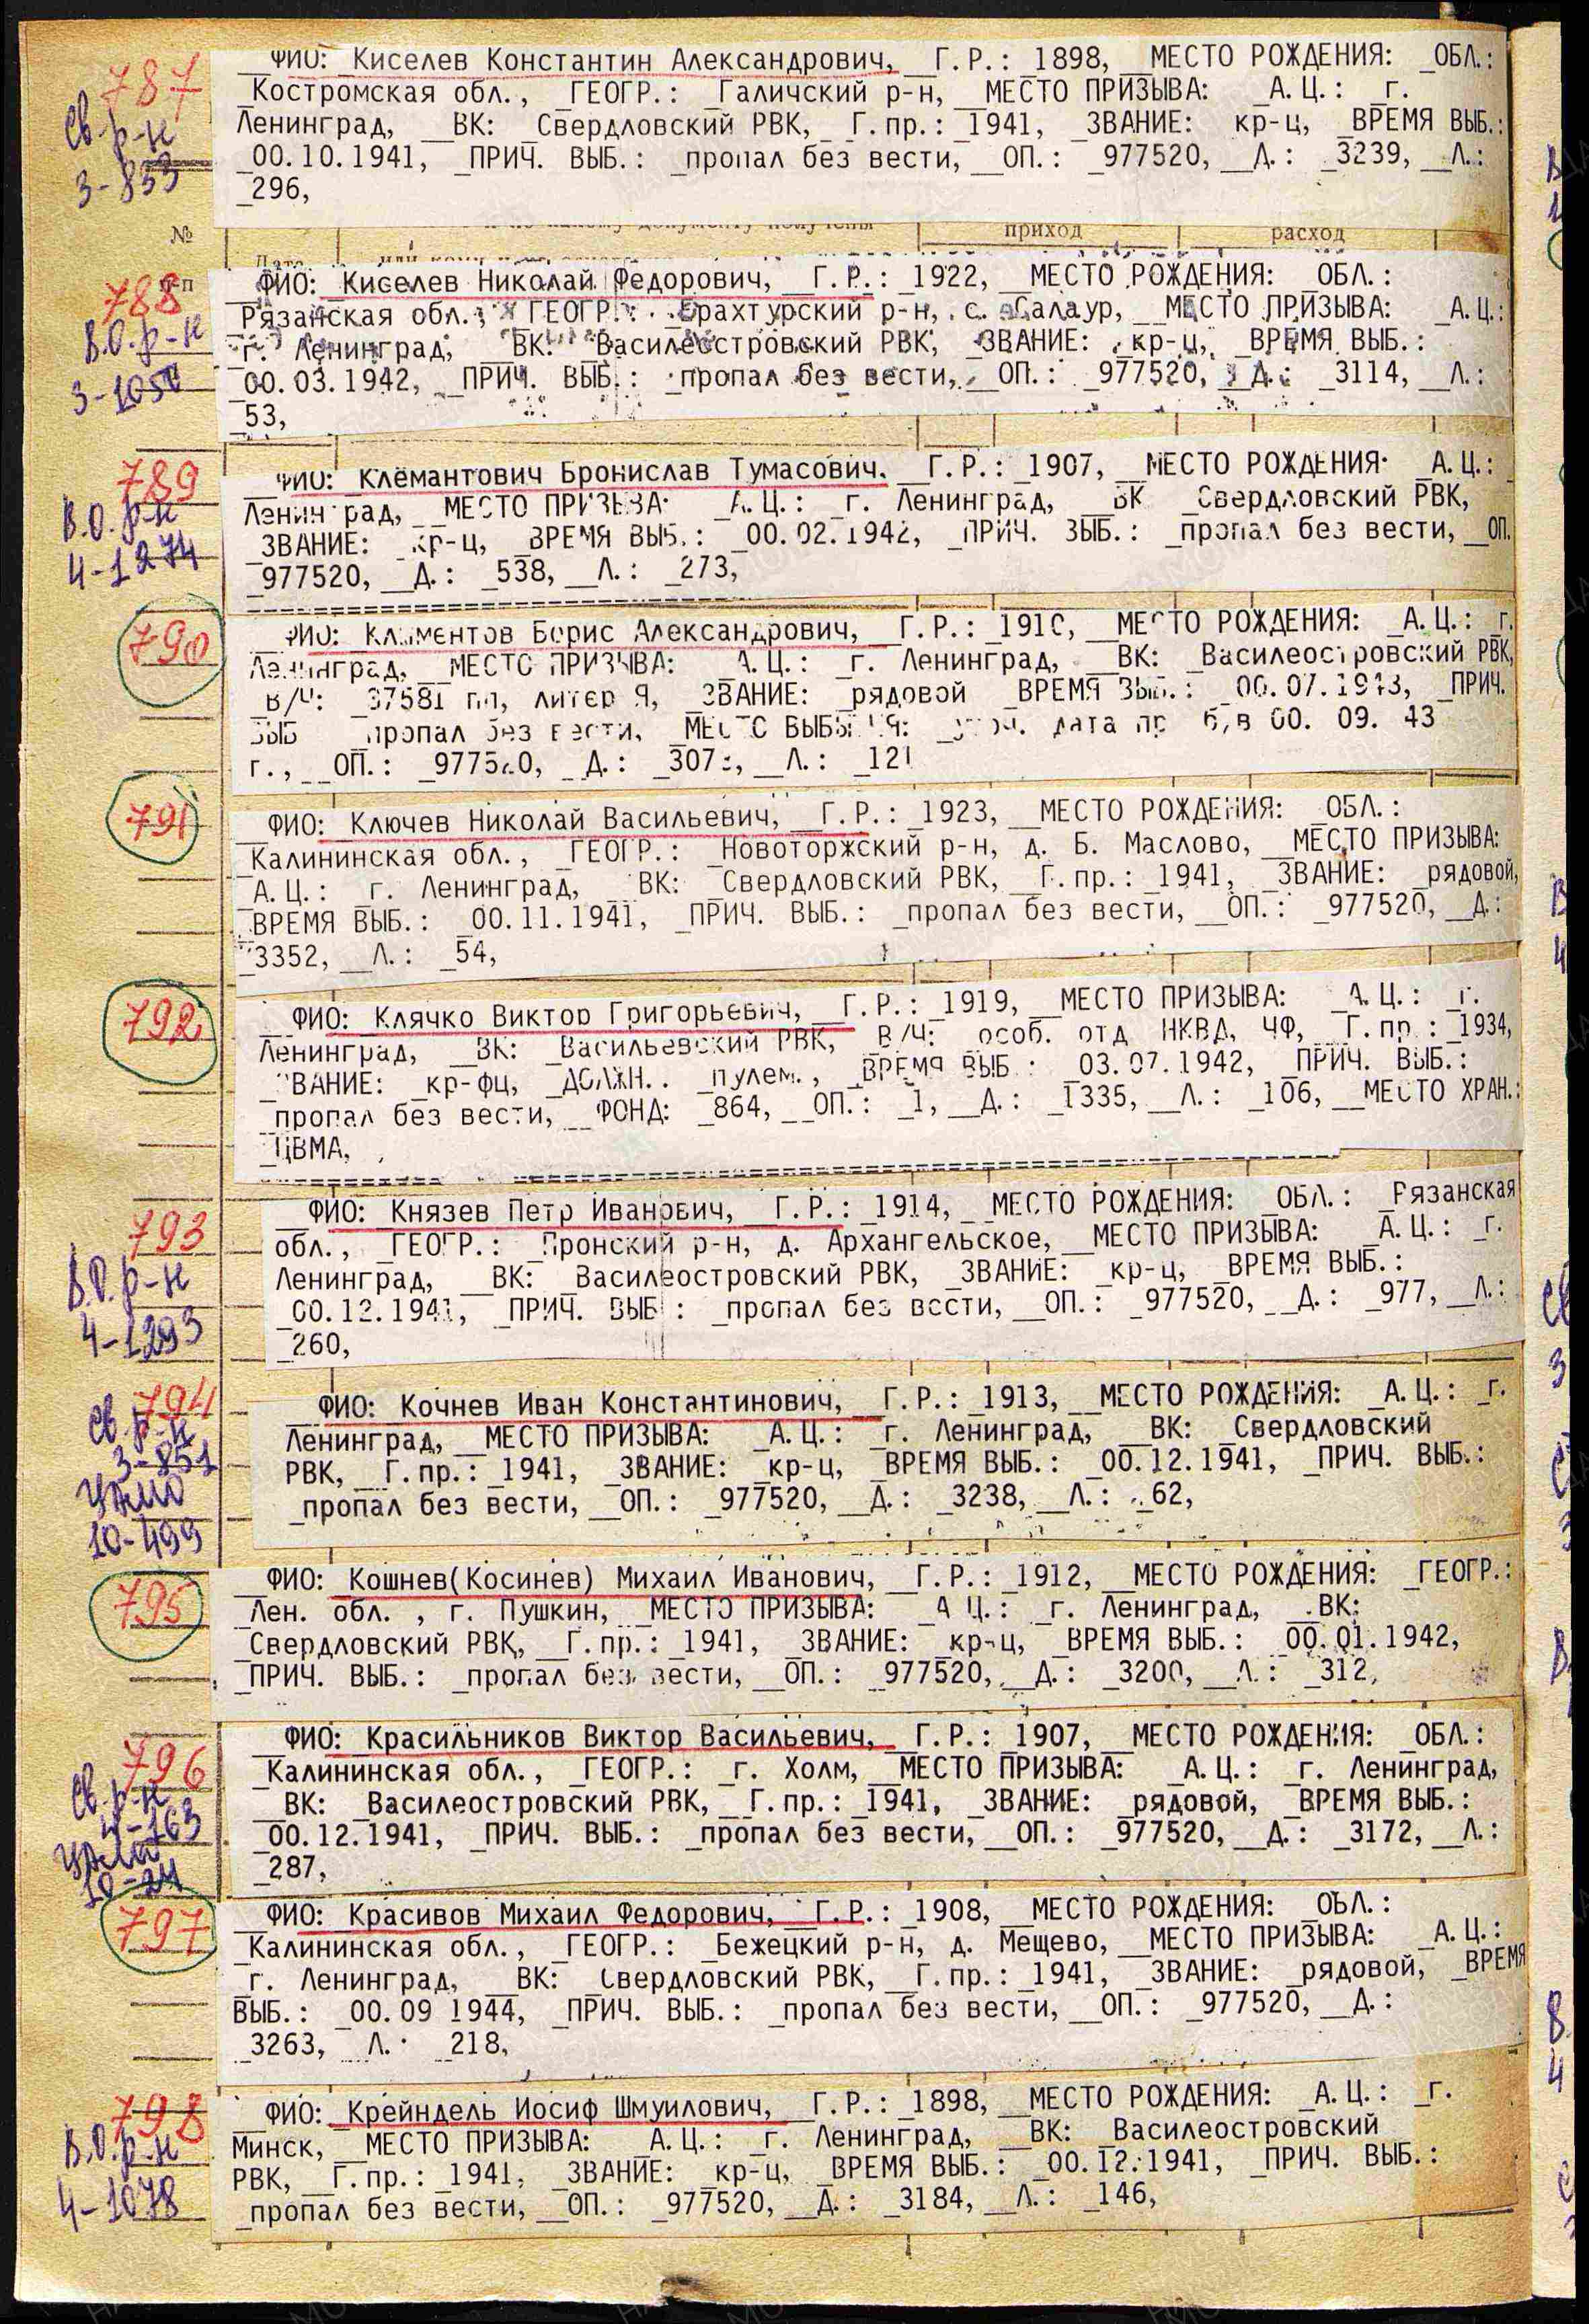 787
Св. р-н
3-833
ФИО: _Киселев Константин Александрович,__Г.Р.: _1898,__МЕСТО РОЖДЕНИЯ: _ОБЛ.:
_Костромская обл., _ГЕОГР.: _Галичский р-н,__МЕСТО ПРИЗЫВА: _А.Ц.: _г.
Ленинград,__ВК: _Свердловский РВК,__Г.пр.: _1941,_ЗВАНИЕ: кр-ц,_ВРЕМЯ ВЫБ.:
_00.10.1941,_ПРИЧ. ВЫБ.: _пропал без вести,__ОП.: _977520,__Д.: _3239,__Л.:
_296,
№
п-п
приход
расход
788
В.О. р-н
ФИО: _Киселев Николай Федорович,__Г.Р.: _1922,__МЕСТО РОЖДЕНИЯ: _ОБЛ.:
_Рязанская обл., ГЕОГР.: Ерахтурский р-н, с. Салаур,__МЕСТО ПРИЗЫВА: _А.Ц.:
г. Ленинград,__ВК: Василеостровский РВК,_ЗВАНИЕ: кр-ц,_ВРЕМЯ ВЫБ.:
_00.03.1942,_ПРИЧ. ВЫБ.: пропал без вести,__ОП.: _977520,__Д.: _3114,__Л.:
_53,
789
В.О. р-н
4-1274
ФИО: _Клемантович Бронислав Тумасович,__Г.Р.: _1907,__МЕСТО РОЖДЕНИЯ: _А.Ц.:
Ленинград,__МЕСТО ПРИЗЫВА: _А.Ц.: _г. Ленинград,__ВК _Свердловский РВК,
ЗВАНИЕ: _кр-ц,_ВРЕМЯ ВЫБ.: _00.02.1942,_ПРИЧ. ВЫБ.: _пропал без вести,__ОП.
_977520,__Д.: _538,__Л.: _273,
790
ФИО: Климентов Борис Александрович,__Г.Р.: _1910,__МЕСТО РОЖДЕНИЯ: _А.Ц.: _г.
Ленинград,__МЕСТО ПРИЗЫВА: А.Ц.: _г. Ленинград,__ВК: _Василеостровский РВК,
_В/Ч: _37581 пп, литер Я,_ЗВАНИЕ: _рядовой _ВРЕМЯ ВЫБ.: _00.07.1943,_ПРИЧ.
ВЫБ _пропал без вести,_МЕСТО ВЫБЫТИЯ: дата пр б/в 00. 09. 43
г.,__ОП.: _977520,__Д.:__Л.: _121
791
ФИО: _Ключев Николай Васильевич,__Г.Р.: _1923,__МЕСТО РОЖДЕНИЯ: _ОБЛ.:
_Калининская обл., _ГЕОГР.: _Новоторжский р-н, д. Б. Маслово,__МЕСТО ПРИЗЫВА:
_А.Ц.: _г. Ленинград, ВК: _Свердловский РВК,__Г.пр.: _1941,_ЗВАНИЕ: _рядовой,
_ВРЕМЯ ВЫБ.: _00.11.1941,_ПРИЧ. ВЫБ.: _пропал без вести,__ОП.: _977520,__Д.:
_3352,__Л.: _54,
792
ФИО: _Клячко Виктор Григорьевич,__Г.Р.: _1919,__МЕСТО ПРИЗЫВА: _А.Ц.: _г.
Ленинград,__ВК: _Васильевский РВК, В/Ч: особ. отд НКВД, ЧФ,__Г.пр.: _1934,
_ЗВАНИЕ: _кр-фц,_ДОЛЖН.. _пулем.,_ВРЕМЯ ВЫБ: 03.07.1942,_ПРИЧ. ВЫБ.:
_пропал без вести,__ФОНД: _864,__ОП.: _1,__Д.: _1335,__Л.: _106,__МЕСТО ХРАН.:
_ЦВМА,
793
В.О. р-н
4-1293
ФИО: _Князев Петр Иванович,__Г.Р.: _1914,__МЕСТО РОЖДЕНИЯ: _ОБЛ.: _Рязанская
обл., _ГЕОГР.: _Пронский р-н, д. Архангельское,__МЕСТО ПРИЗЫВА: _А.Ц.: _г.
Ленинград,__ВК: _Василеостровский РВК,_ЗВАНИЕ: _кр-ц,_ВРЕМЯ ВЫБ.:
_00.12.1941,_ПРИЧ. ВЫБ: _пропал без вести,__ОП.: _977520,__Д.: _977,__Л.:
_260,
794
Св. р-н
3-851
ЦАМО
10-499
ФИО: _Кочнев Иван Константинович,__Г.Р.: _1913,__МЕСТО РОЖДЕНИЯ: _А.Ц.: _г.
Ленинград,__МЕСТО ПРИЗЫВА: _А.Ц.: _г. Ленинград,__ВК: _Свердловский
РВК,__Г.пр.: _1941,_ЗВАНИЕ: _кр-ц,_ВРЕМЯ ВЫБ.: _00.12.1941,_ПРИЧ. ВЫБ.:
_пропал без вести,__ОП.: _977520,__Д.: _3238,__Л.: _62,
795
ФИО: _Кошнев(Косинев) Михаил Иванович,__Г.Р.: _1912,__МЕСТО РОЖДЕНИЯ: _ГЕОГР.:
_Лен. обл. , г. Пушкин,_МЕСТО ПРИЗЫВА: _А Ц.: _г. Ленинград,__ВК:
_Свердловский РВК,__Г.пр.: _1941,_ЗВАНИЕ: _кр-ц,_ВРЕМЯ ВЫБ.: _00.01.1942,
_ПРИЧ. ВЫБ.: _пропал без вести,__ОП.: _977520,__Д.: _3200,__Л.: _312,
796
Св. р-н
4-163
ЦАМО
10-24
ФИО: _Красильников Виктор Васильевич,__Г.Р.: _1907,__МЕСТО РОЖДЕНИЯ: _ОБЛ.:
_Калининская обл., _ГЕОГР.: _г. Холм,__МЕСТО ПРИЗЫВА: _А.Ц.: _г. Ленинград,
__ВК: _Василеостровский РВК,__Г.пр.: _1941,_ЗВАНИЕ: _рядовой,_ВРЕМЯ ВЫБ.:
_00.12.1941,_ПРИЧ. ВЫБ.: _пропал без вести,__ОП.: _977520,__Д.: _3172,__Л.:
_287,
797
ФИО: _Красивов Михаил Федорович,__Г.Р.: _1908,__МЕСТО РОЖДЕНИЯ: _ОБЛ.:
_Калининская обл., _ГЕОГР.: _Бежецкий р-н, д. Мещево,__МЕСТО ПРИЗЫВА: _А.Ц.:
_г. Ленинград,__ВК: Свердловский РВК,__Г.пр.: _1941,_ЗВАНИЕ: _рядовой,_ВРЕМЯ
ВЫБ.: _00.09 1944,_ПРИЧ. ВЫБ.: _пропал без вести,__ОП.: _977520,__Д.:
_3263,__Л.: _218,
798
В.О. р-н
4-1078
ФИО: _Крейндель Иосиф Шмуилович,__Г.Р.: _1898,__МЕСТО РОЖДЕНИЯ: _А.Ц.: _г.
Минск,__МЕСТО ПРИЗЫВА: _А.Ц.: _г. Ленинград,__ВК: _Василеостровский
РВК,__Г.пр.: _1941,_ЗВАНИЕ: _кр-ц,_ВРЕМЯ ВЫБ.: _00.12.1941,_ПРИЧ. ВЫБ.:
_пропал без вести,__ОП.: _977520,__Д.: _3184,__Л.: _146,